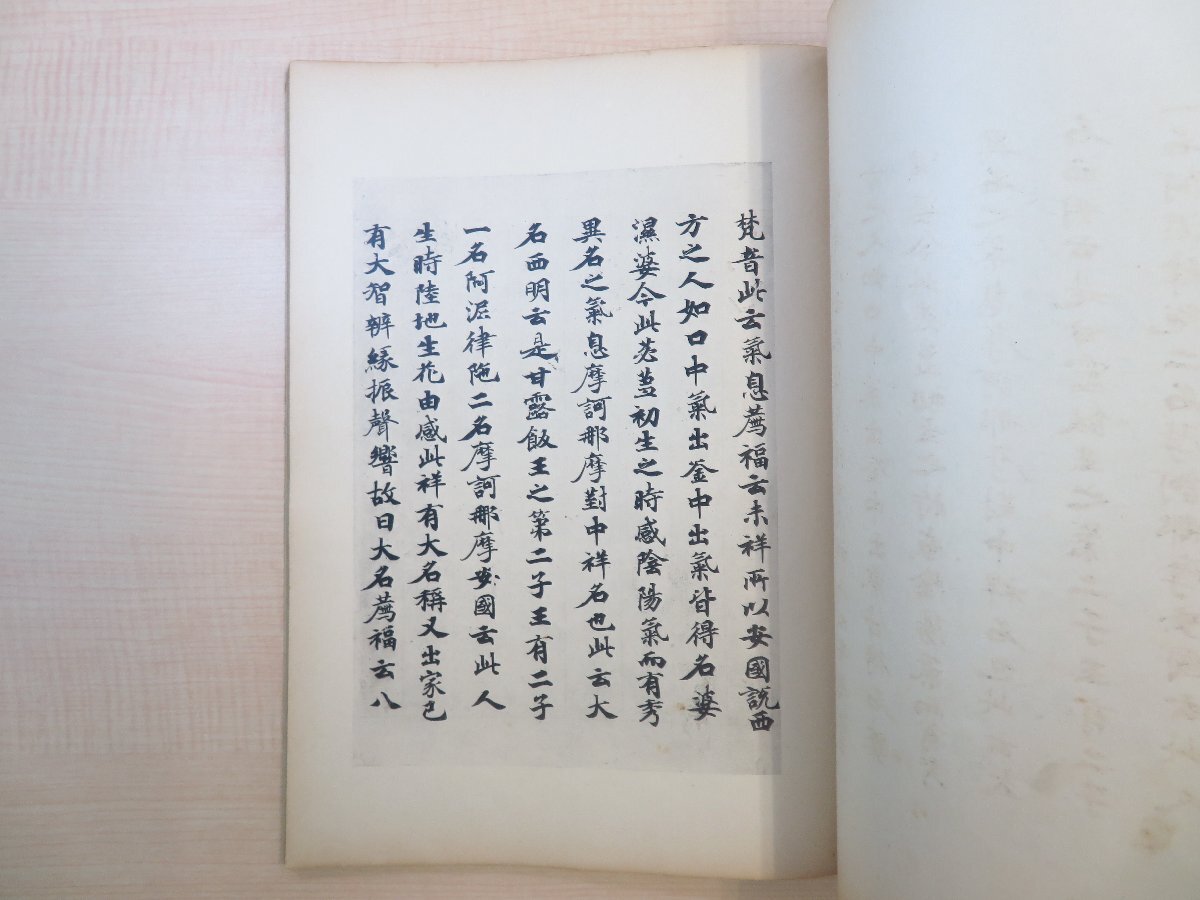 梵音此云氣息薦福云未祥所以安國說西
方之人如口中氣出釜中出氣皆得名婆
濕婆今此苾蒭初生之時感陰陽氣而有秀
異名之氣息摩訶那摩對中祥名也此云大
名西明云是甘露飯王之第二子王有二子
一名阿泥律陁二名摩訶那摩安國云此人
生時陸地生花由感此祥有大名稱又出家已
有大智辨緣振聲響故曰大名薦福云八